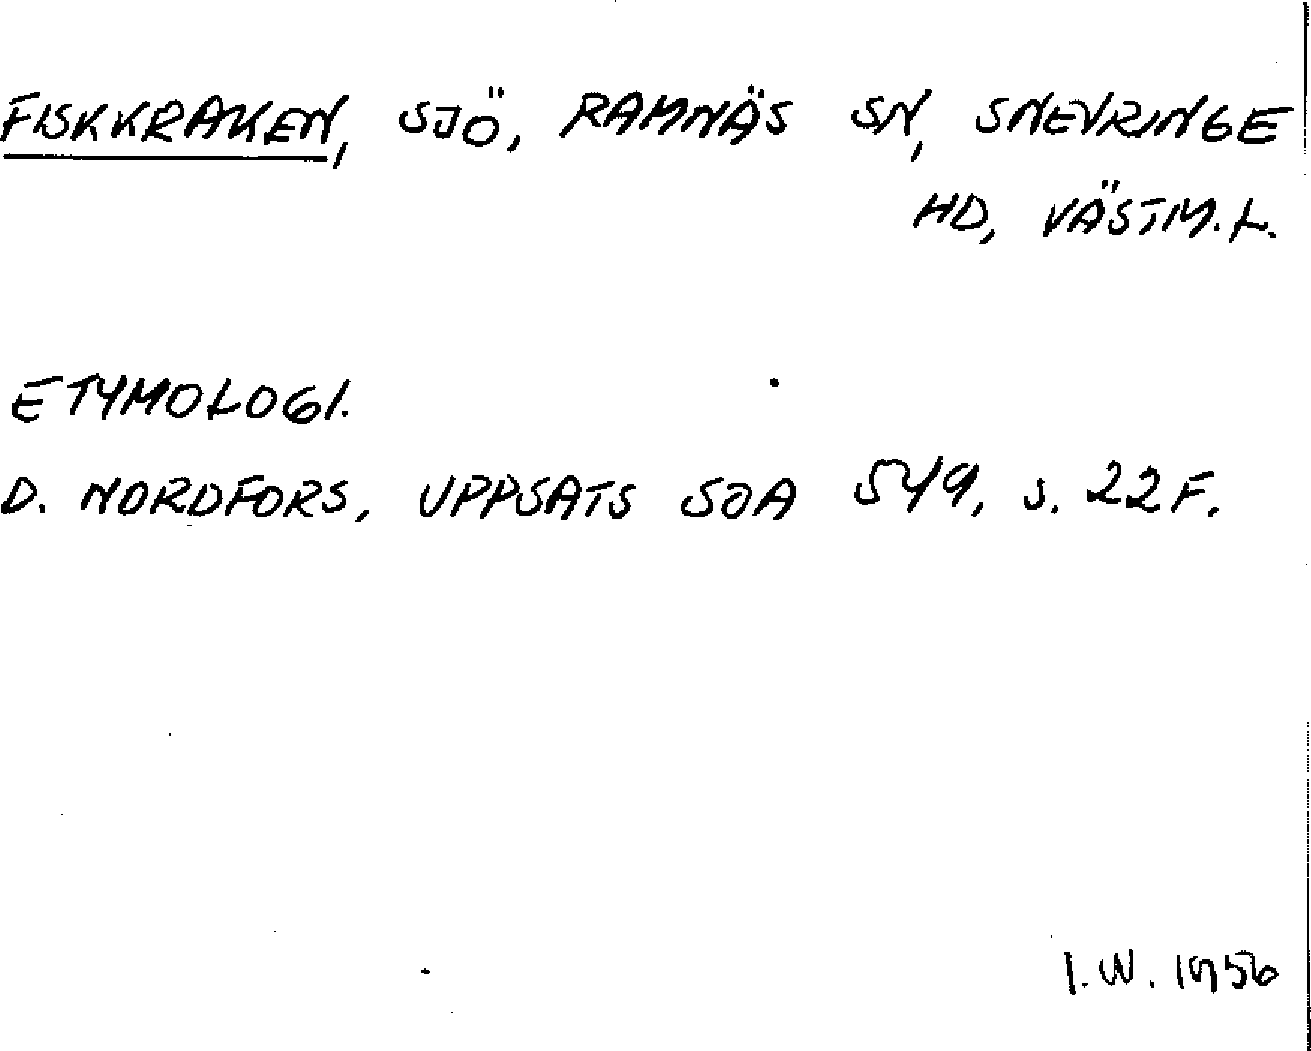 FISKKRAKEN, SJÖ, RAMNÄS SN, SNEVRINGE
HD, VÄSTM. L.
ETYMOLOGI.
D. NORDFORS, UPPSATS SOA 549, S. 22 F.
I. W. 1956